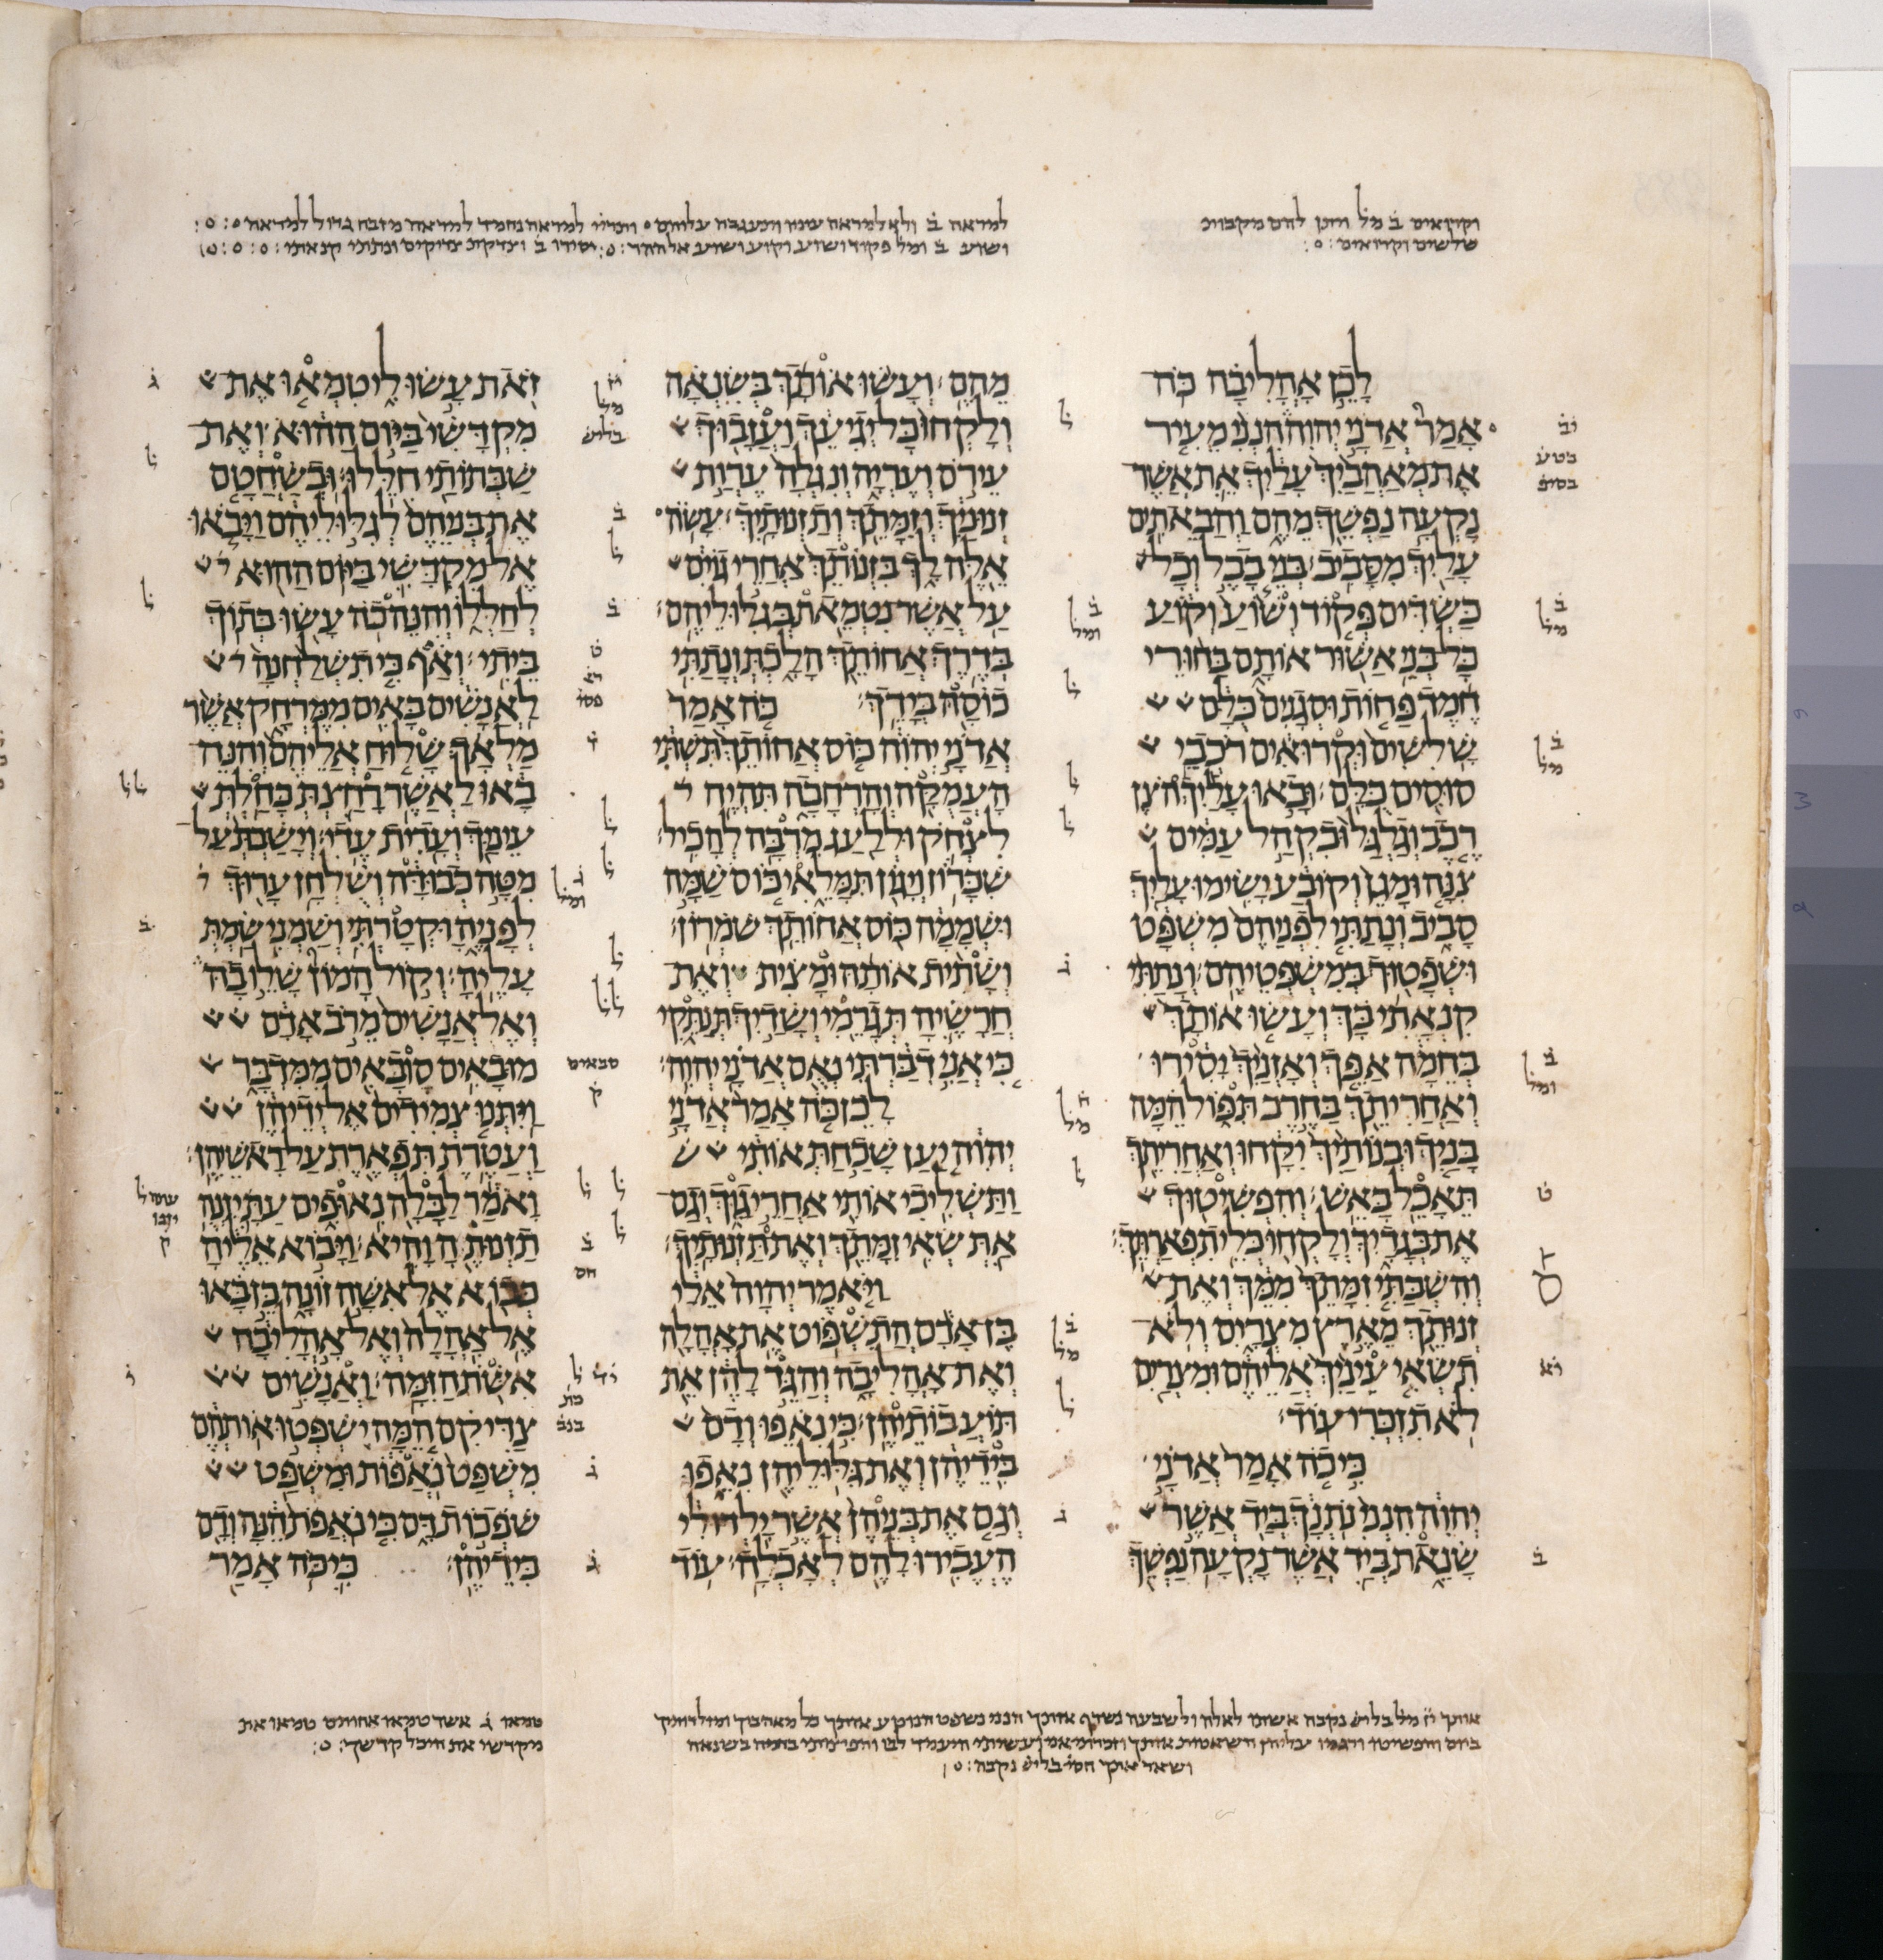 לכן אהליבה כה
אמר אדני יהוה הנני מעיר
את מאהביך עליך את אשר
נקעה נפשך מהם והבאתים
עליך מסביב בני בבל וכל
כשדים פקוד ושוע וקוע
כל בני אשור אותם בחורי
חמד פחות וסגנים כלם
שלשים וקרואים רכבי
סוסים כלם ובאו עליך הצן
רכב וגלגל ובקהל עמים
צנה ומגן וקובע ישימו עליך
סביב ונתתי לפניהם משפט
ושפטוך במשפטיהם ונתתי
קנאתי בך ועשו אותך
בחמה אפך ואזניך יסירו
ואחריתך בחרב תפול המה
בניך ובנותיך יקחו ואחריתך
תאכל באש והפשיטוך
את בגדיך ולקחו כלי תפארתך
והשבתי זמתך ממך ואת
זנותך מארץ מצרים ולא
תשאי עיניך אליהם ומצרים
לא תזכרי עוד
כי כה אמר אדני
יהוה הנני נתנך ביד אשר
שנאת ביד אשר נקעה נפשך
מהם ועשו אותך בשנאה
ולקחו כל יגיעך ועזבוך
עירם ועריה ונגלה ערות
זנוניך וזמתך ותזנותיך עשה
אלה לך בזנותך אחרי גוים
על אשר נטמאת בגלוליהם
בדרך אחותך הלכת ונתתי
כוסה בידך כה אמר
אדני יהוה כוס אחותך תשתי
העמקה והרחבה תהיה
לצחק וללעג מרבה להכיל
שכרון ויגון תמלאי כוס שמה
ושממה כוס אחותך שמרון
ושתית אותה ומצית ואת
חרשיה תגרמי ושדיך תנתקי
כי אני דברתי נאם אדני יהוה
לכן כה אמר אדני
יהוה יען שכחת אותי
ותשליכי אותי אחרי גוך וגם
את שאי זמתך ואת תזנותיך
ויאמר יהוה אלי
בן אדם התשפוט את אהלה
ואת אהליבה והגד להן את
תועבותיהן כי נאפו ודם
בידיהן ואת גלוליהן נאפו
וגם את בניהן אשר ילדו לי
העבירו להם לאכלה עוד
זאת עשו לי טמאו את
מקדשי ביום ההוא ואת
שבתותי חללו ובשחטם
את בניהם לגלוליהם ויבאו
אל מקדשי ביום ההוא
לחללו והנה כה עשו בתוך
ביתי ואף כי תשלחנה
לאנשים באים ממרחק אשר
מלאך שלוח אליהם והנה
באו לאשר רחצת כחלת
עיניך ועדית עדי וישבת על
מטה כבודה ושלחן ערוך
לפניה וקטרתי ושמני שמת
עליה וקול המון שלו בה
ואל אנשים מרב אדם
מובאים סובאים ממדבר
ויתנו צמידים אל ידיהן
ועטרת תפארת על ראשיהן
ואמר לבלה נאופים עת יזנה
תזנותה והיא ויבוא אליה
כבוא אל אשה זונה כן באו
אל אהלה ואל אהליבה
אשת הזמה ואנשים
צדיקם המה ישפטו אותהם
משפט נאפות ומשפט
שפכות דם כי נאפת הנה ודם
בידיהן כי כה אמר